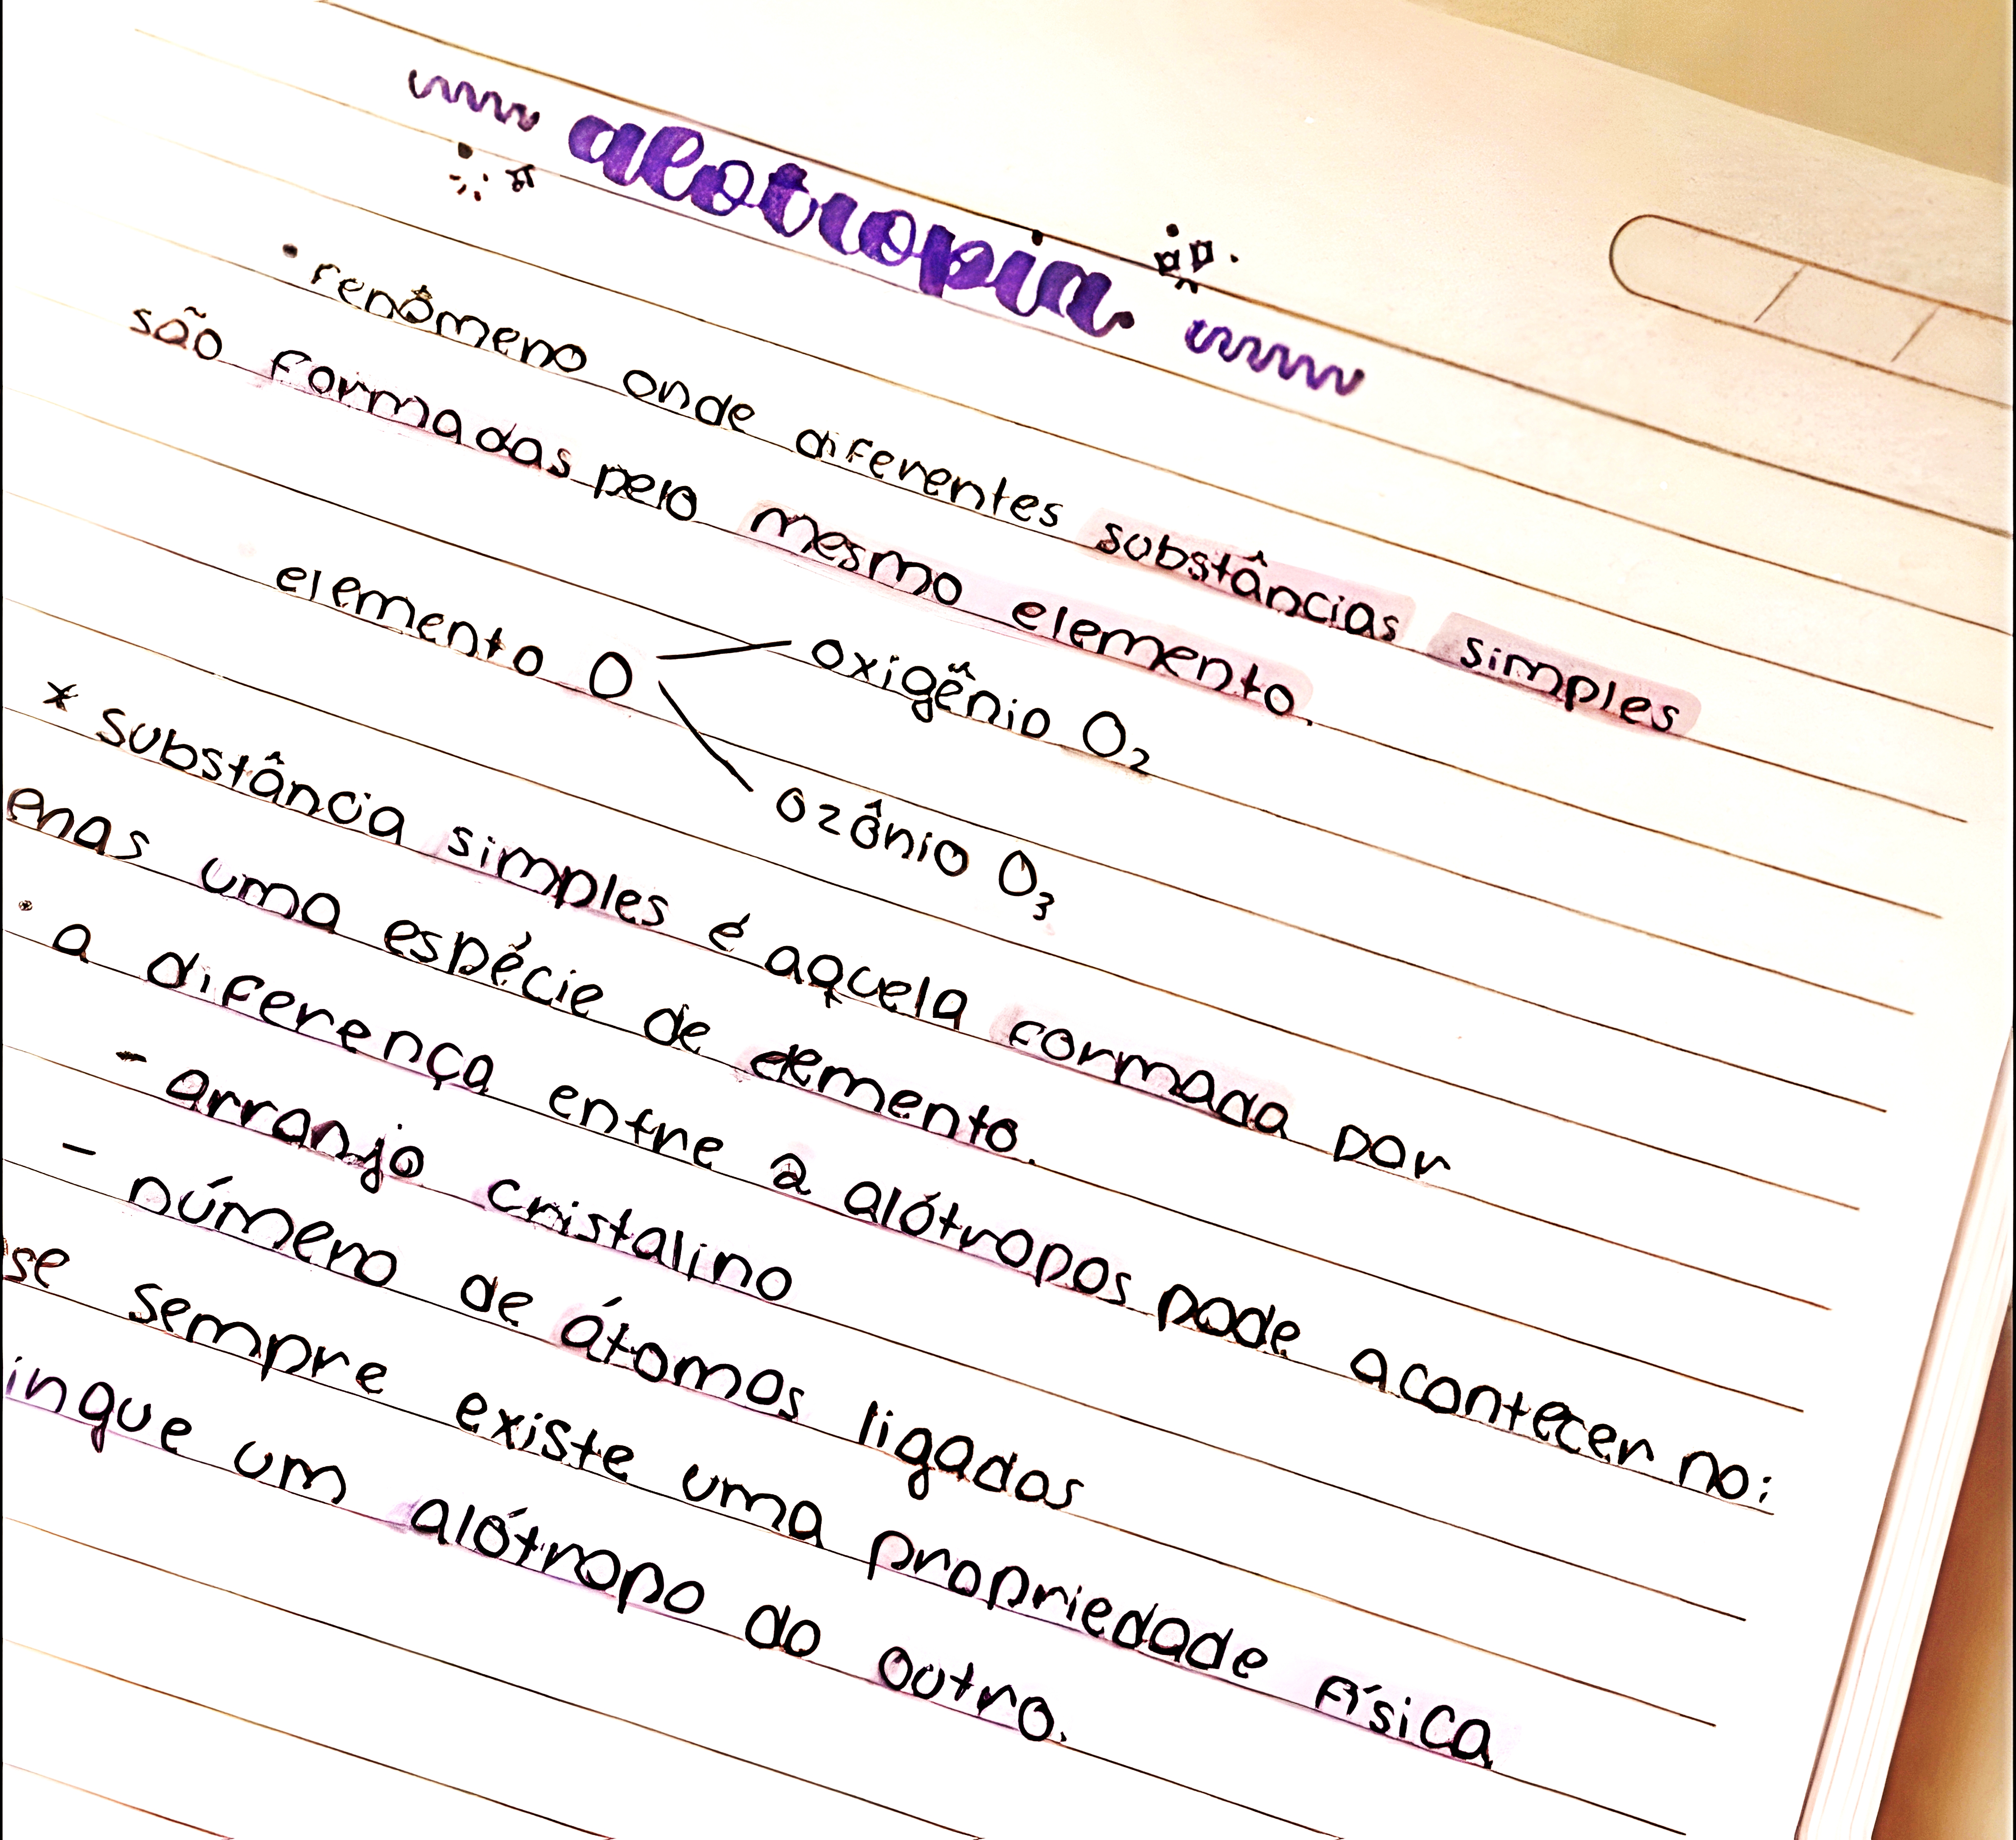 alotropia
• fenômeno onde diferentes substâncias simples
são formadas pelo mesmo elemento.
elemento O
oxigênio O₂
ozônio O₃
* substância simples é aquela formada por
enas uma espécie de elemento.
• a diferença entre 2 alótropos pode acontecer no:
- arranjo cristalino
- número de átomos ligados
se sempre existe uma propriedade física
ingue um alótropo do outro.